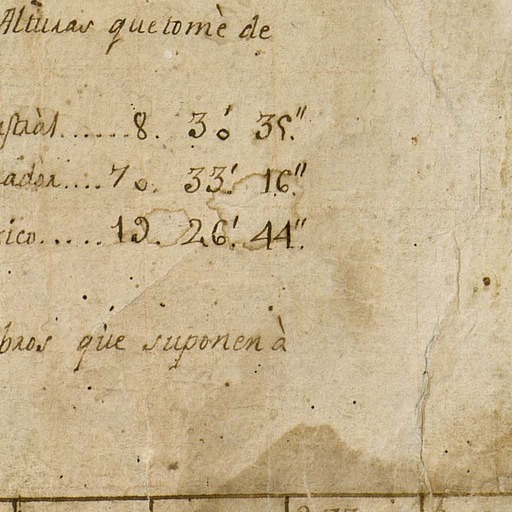 Alturas que tomè de
astràl......8. 30' 35."
adòr....70. 33.' 16."
rico.....19. 26.' 44."
bros que suponen à